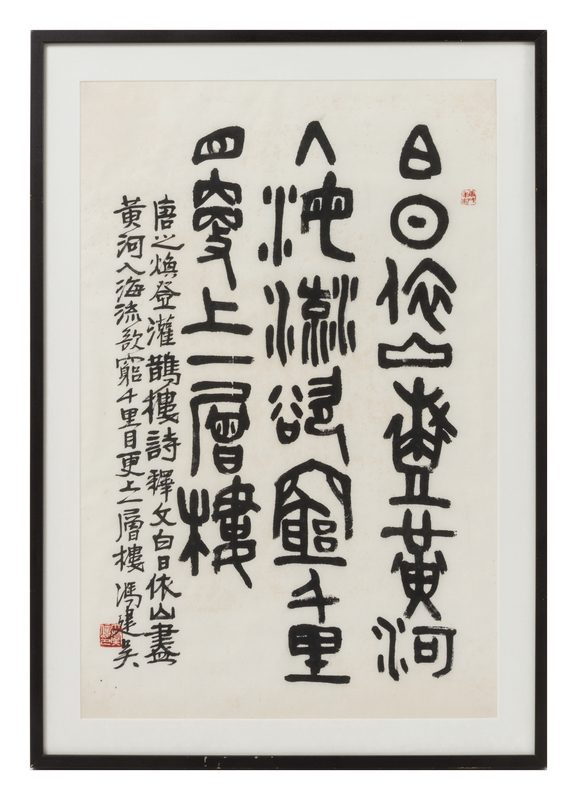 白日依山盡黃河
入海流欲窮千里
目更上一層樓
唐之煥登灌鵲樓詩釋文白日依山盡
黃河入海流欲窮千里目更上一層樓 馮建吳